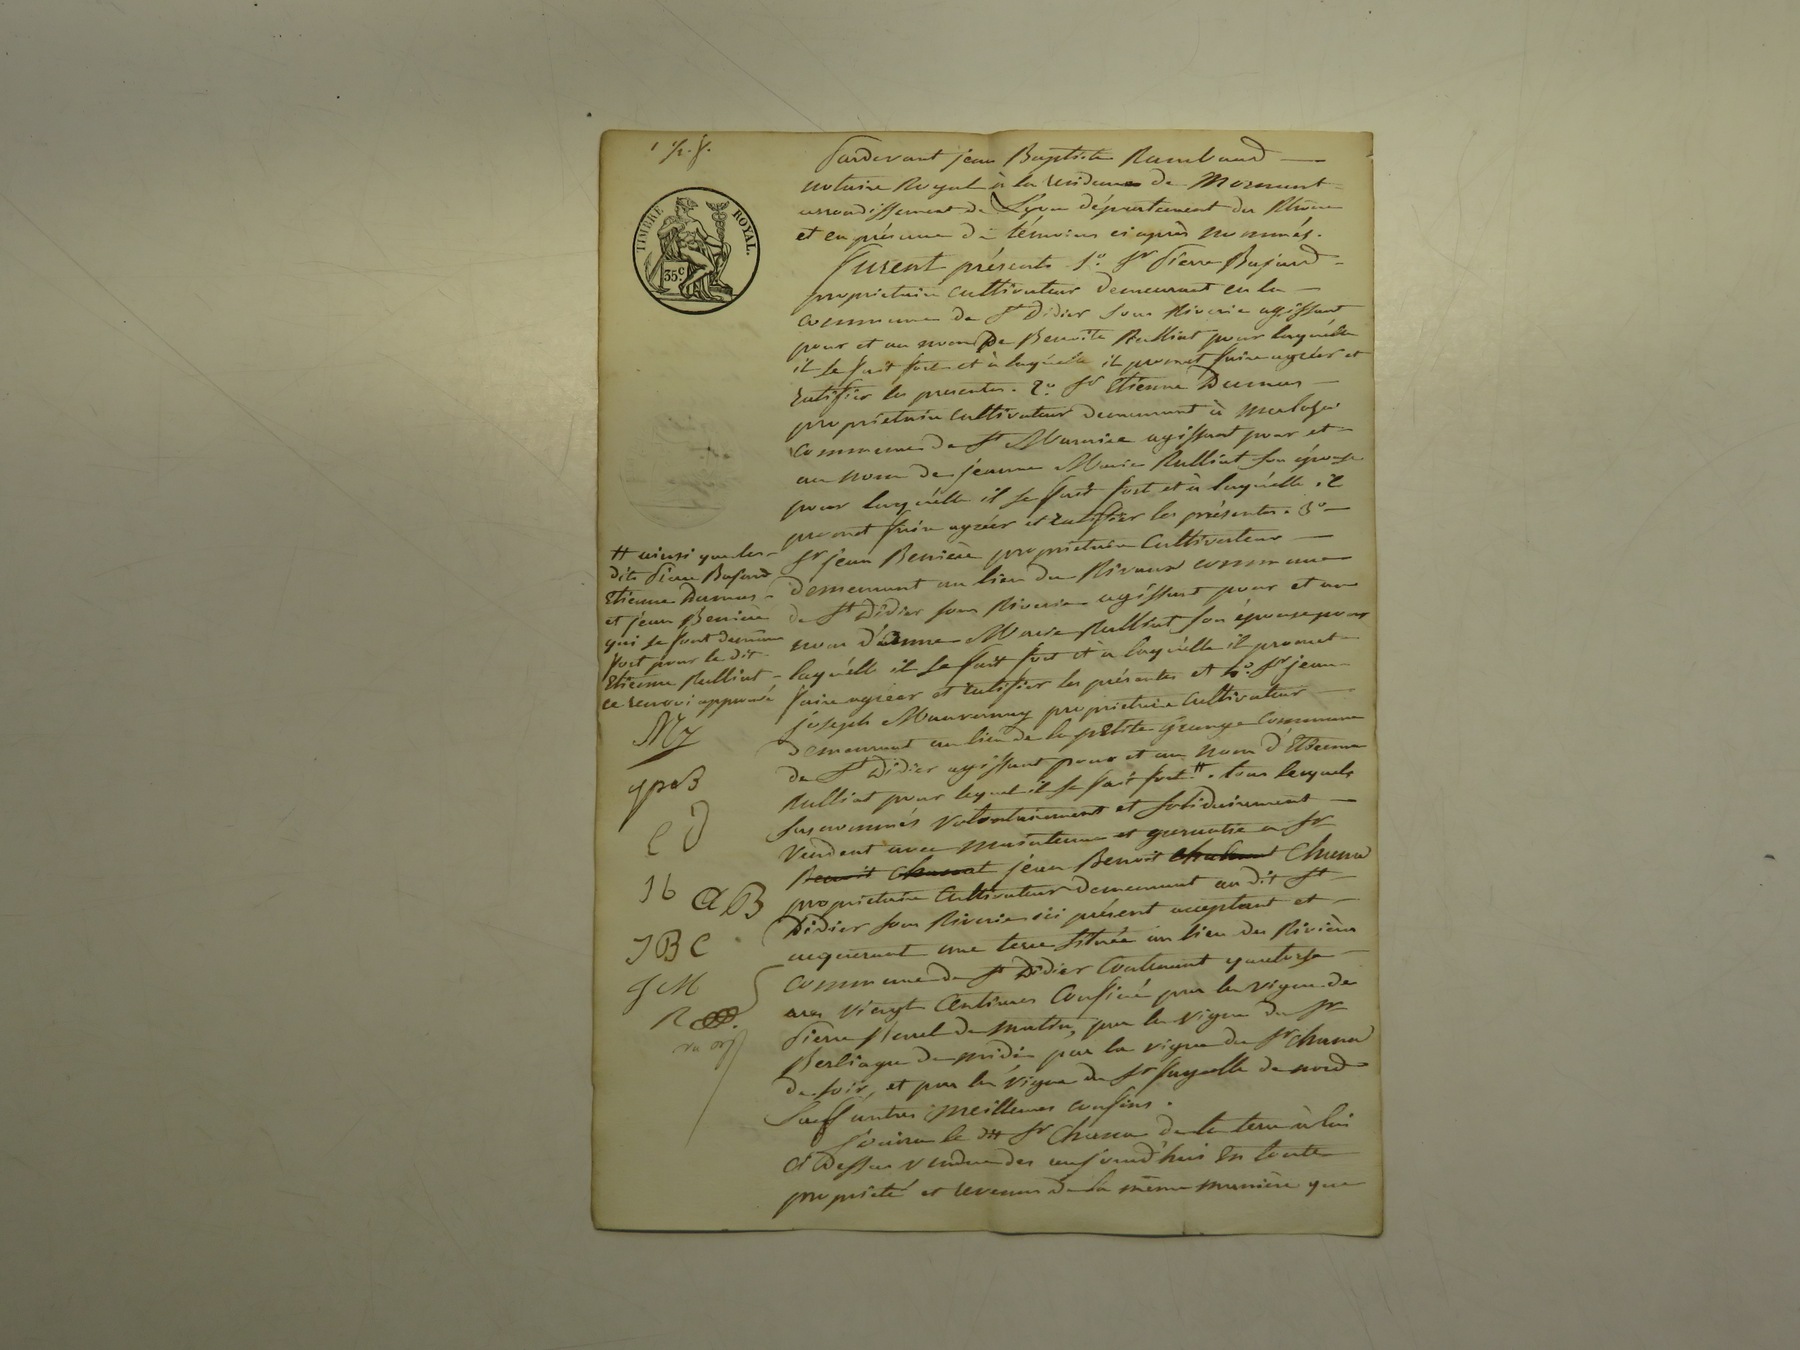 TIMBRE ROYAL.
35c.
Pardevant jean Baptiste Rambaud
notaire Royal à la residence de Mornant
arrondissement de Lyon département du Rhône
et en présence de témoins ci après nommés.
Furent présents 1o. Sr Pierre Bajard
proprietaire cultivateur demeurant en la
commune de St Didier sous Riverie agissant
pour et au nom de Benoite Rulliat pour laquelle
il se fait fort et à laquelle il promet faire agréer et
ratifier les presentes. 2o. Sr Etienne Dumas
proprietaire Cultivateur demeurant à
commune de St Maurice agissant pour et
au nom de jeanne Marie Rulliat son épouse
pour laquelle il se fait fort et à laquelle il
promet faire agréer et ratifier les présentes. 3o
Sr jean proprietaire Cultivateur
demeurant au lieu du Rivaux commune
de St Didier sous Riverie agissant pour et au
nom d'anne Marie Rulliat son épouse pour
laquelle il se fait fort et à laquelle il promet
faire agréer et ratifier les présentes et 4o. Sr jean
joseph Mauvernay proprietaire Cultivateur
demeurant au lieu de la petite Grange Commune
de St Didier agissant pour et au nom d'Etienne
Rulliat pour lequel il se fait fort #. tous lesquels
susnommés volontairement et solidairement
vendent avec maintenue et garantie a Sr
jean Benoit Chana
proprietaire Cultivateur demeurant au dit St
Didier sous Riverie ici présent acceptant et
acquerant une terre située au lieu des Rivières
commune de St Didier Contenant quatorze
ares viengt Centiares Confiné par la vigne de
Pierre de matin, par la vigne du Sr
de midi par la vigne du Sr Chana
de soir, et par la vigne du Sr de nord
Sauf autres meilleures confins.
Jouira le dit Sr Chana de la terre à lui
ci dessus vendue des aujourd'hui En toute
propriété et revenus de la même manière que
# ainsi que les
dits Pierre Bajard
Etienne Dumas
et jean
qui se font de même
fort pour le dit
Etienne Rulliat
ce renvoi approuvé
E D
JB
JBC
JM
R